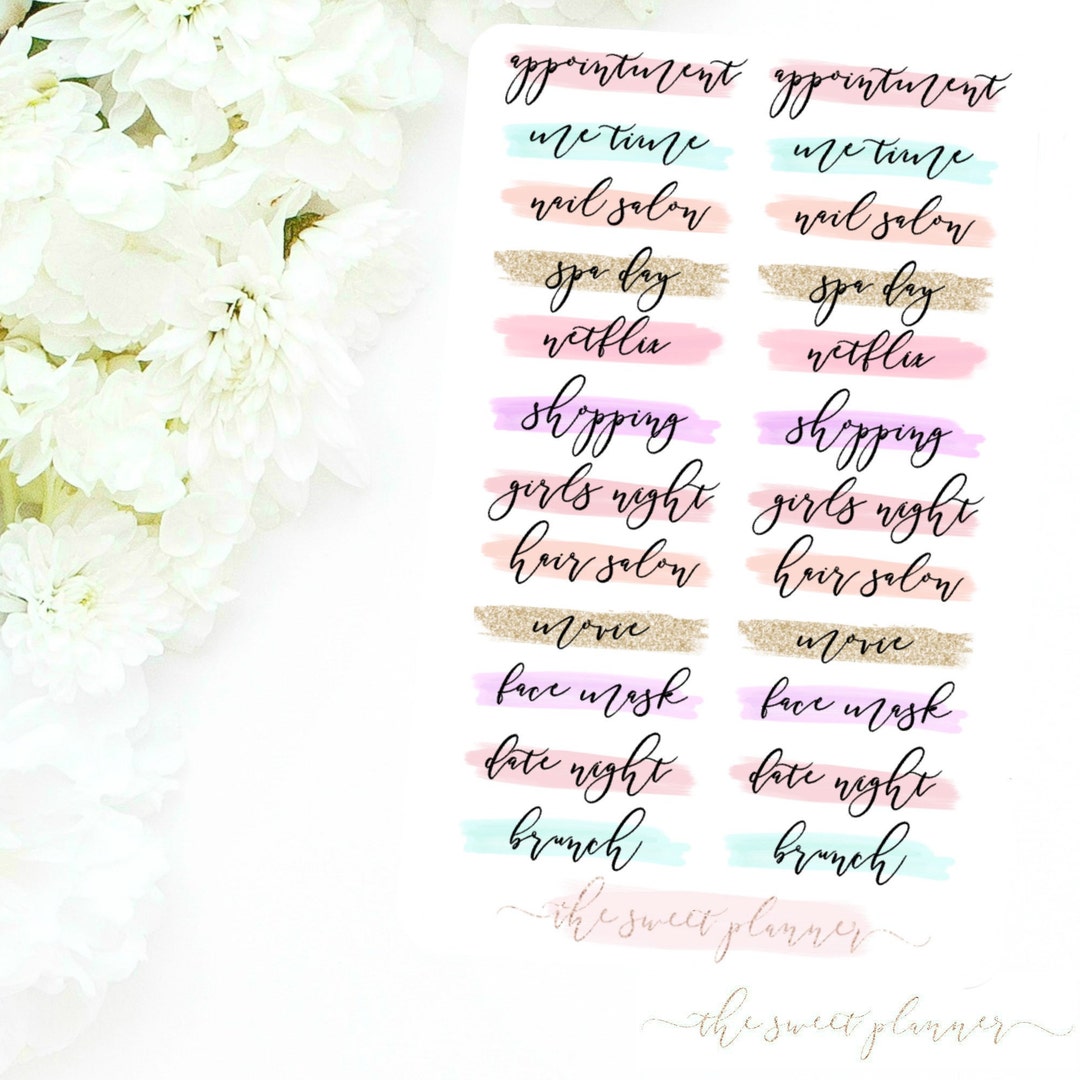 appointment appointment
me time me time
nail salon nail salon
spa day spa day
netflix netflix
shopping shopping
girls night girls night
hair salon hair salon
movie movie
face mask face mask
date night date night
brunch brunch
the sweet planner
the sweet planner